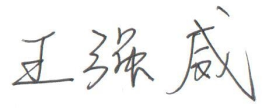 王强威